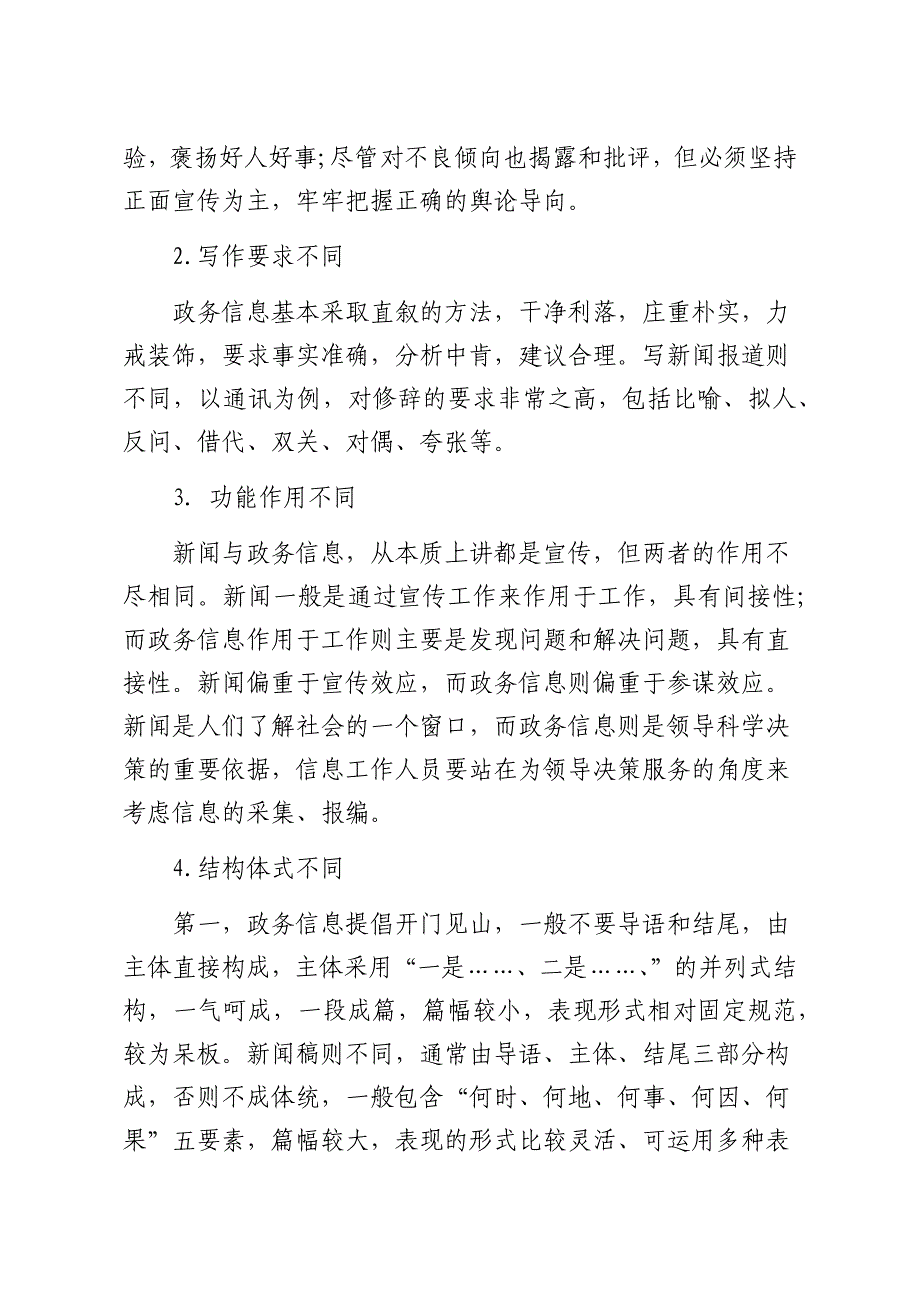 验，褒扬好人好事;尽管对不良倾向也揭露和批评，但必须坚持
正面宣传为主，牢牢把握正确的舆论导向。
2.写作要求不同
政务信息基本采取直叙的方法，干净利落，庄重朴实，力
戒装饰，要求事实准确，分析中肯，建议合理。写新闻报道则
不同，以通讯为例，对修辞的要求非常之高，包括比喻、拟人、
反问、借代、双关、对偶、夸张等。
3. 功能作用不同
新闻与政务信息，从本质上讲都是宣传，但两者的作用不
尽相同。新闻一般是通过宣传工作来作用于工作，具有间接性;
而政务信息作用于工作则主要是发现问题和解决问题，具有直
接性。新闻偏重于宣传效应，而政务信息则偏重于参谋效应。
新闻是人们了解社会的一个窗口，而政务信息则是领导科学决
策的重要依据，信息工作人员要站在为领导决策服务的角度来
考虑信息的采集、报编。
4.结构体式不同
第一，政务信息提倡开门见山，一般不要导语和结尾，由
主体直接构成，主体采用“一是……、二是……、”的并列式结
构，一气呵成，一段成篇，篇幅较小，表现形式相对固定规范，
较为呆板。新闻稿则不同，通常由导语、主体、结尾三部分构
成，否则不成体统，一般包含“何时、何地、何事、何因、何
果”五要素，篇幅较大，表现的形式比较灵活、可运用多种表